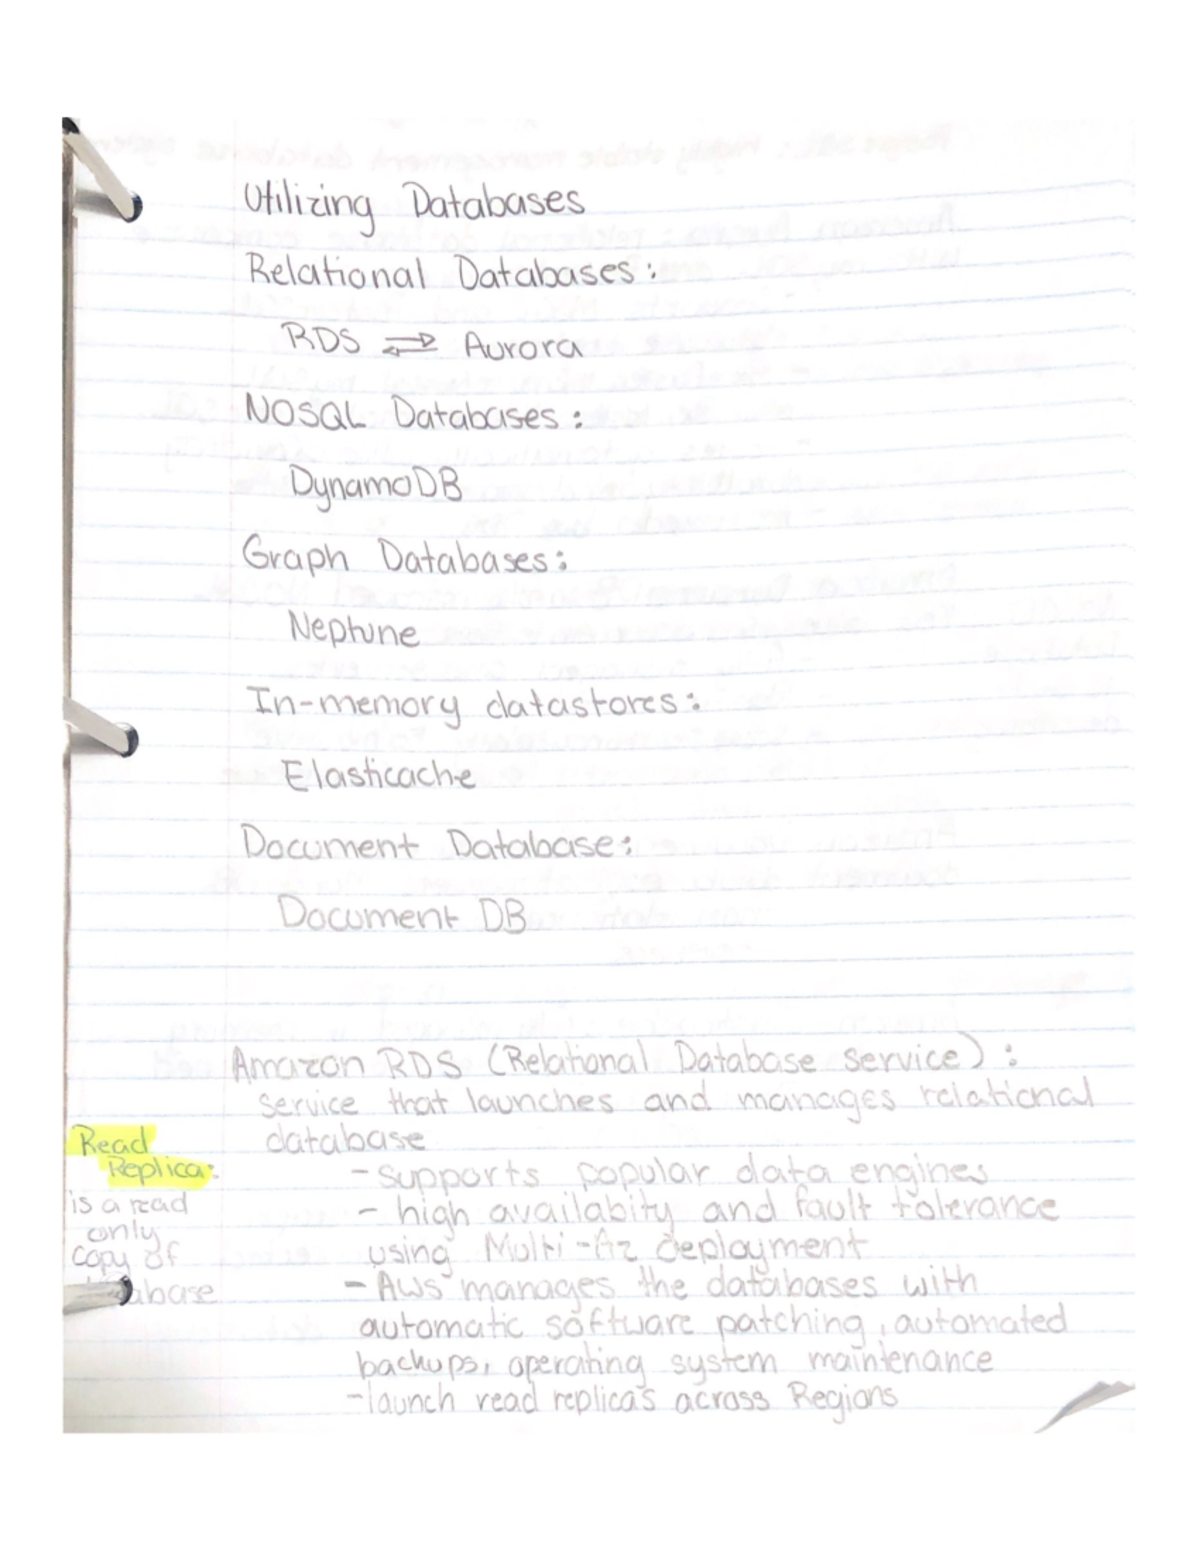 Utilizing Databases
Relational Databases:
RDS ⇄ Aurora
NOSQL Databases:
DynamoDB
Graph Databases:
Neptune
In-memory datastores:
Elasticache
Document Database:
Document DB
Amazon RDS (Relational Database service):
service that launches and manages relational
database
- supports popular data engines
- high availabity and fault tolerance
using Multi-Az deployment
- Aws manages the databases with
automatic software patching, automated
backups, operating system maintenance
- launch read replicas across Regions
Read
Replica:
is a read
only
copy of